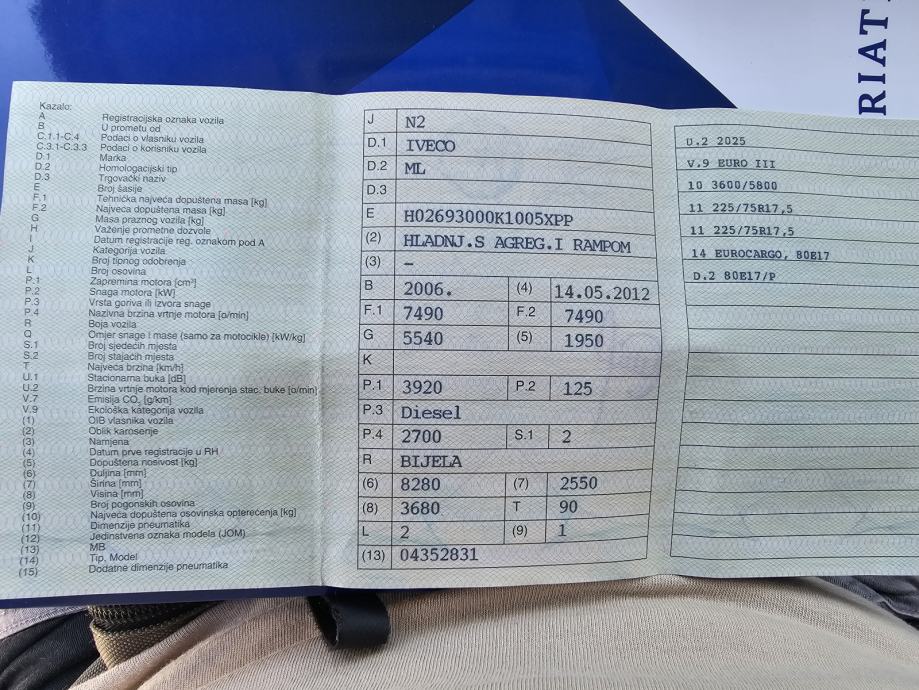 RIAT
Kazalo:
A Registracijska oznaka vozila
B U prometu od
C.1.1-C.4 Podaci o vlasniku vozila
C.3.1-C.3.3 Podaci o korisniku vozila
D.1 Marka
D.2 Homologacijski tip
D.3 Trgovački naziv
E Broj šasije
F.1 Tehnička najveća dopuštena masa [kg]
F.2 Najveća dopuštena masa [kg]
G Masa praznog vozila [kg]
H Važenje prometne dozvole
I Datum registracije reg. oznakom pod A
J Kategorija vozila
K Broj tipnog odobrenja
L Broj osovina
P.1 Zapremina motora [cm³]
P.2 Snaga motora [kW]
P.3 Vrsta goriva ili izvora snage
P.4 Nazivna brzina vrtnje motora [o/min]
R Boja vozila
Q Omjer snage i mase (samo za motocikle) [kW/kg]
S.1 Broj sjedećih mjesta
S.2 Broj stajaćih mjesta
T Najveća brzina [km/h]
U.1 Stacionarna buka [dB]
U.2 Brzina vrtnje motora kod mjerenja stac. buke [o/min]
V.7 Emisija CO₂ [g/km]
V.9 Ekološka kategorija vozila
(1) OIB vlasnika vozila
(2) Oblik karoserije
(3) Namjena
(4) Datum prve registracije u RH
(5) Dopuštena nosivost [kg]
(6) Duljina [mm]
(7) Širina [mm]
(8) Visina [mm]
(9) Broj pogonskih osovina
(10) Najveća dopuštena osovinska opterećenja [kg]
(11) Dimenzije pneumatika
(12) Jedinstvena oznaka modela (JOM)
(13) MB
(14) Tip, Model
(15) Dodatne dimenzije pneumatika
J N2
D.1 IVECO
D.2 ML
D.3
E H02693000K1005XPP
(2) HLADNJ.S AGREG.I RAMPOM
(3) –
B 2006. (4) 14.05.2012
F.1 7490 F.2 7490
G 5540 (5) 1950
K
P.1 3920 P.2 125
P.3 Diesel
P.4 2700 S.1 2
R BIJELA
(6) 8280 (7) 2550
(8) 3680 T 90
L 2 (9) 1
(13) 04352831
U.2 2025
V.9 EURO III
10 3600/5800
11 225/75R17,5
11 225/75R17,5
14 EUROCARGO, 80E17
D.2 80E17/P